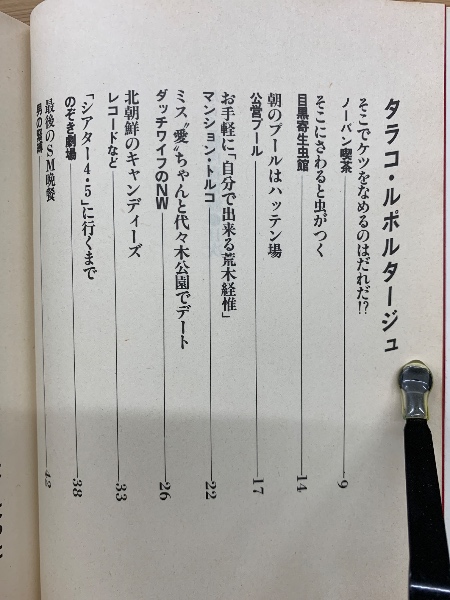 タラコ・ルポルタージュ
そこでケツをなめるのはだれだ!?
ノーパン喫茶 9
そこにさわると虫がつく
目黒寄生虫館 14
朝のプールはハッテン場
公営プール 17
お手軽に「自分で出来る荒木経惟」
マンション・トルコ 22
ミス〝愛〟ちゃんと代々木公園でデート
ダッチワイフのNW 26
北朝鮮のキャンディーズ
レコードなど 33
「シアター4・5」に行くまで
のぞき劇場 38
最後のSM晩餐
男の 42